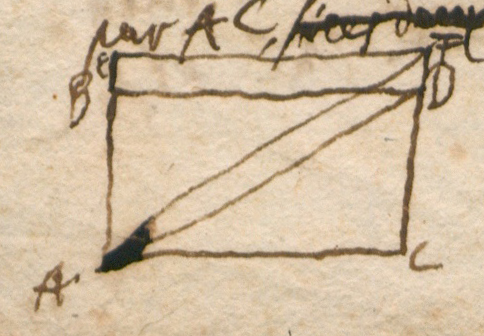 par AC,
e F
B D
A C